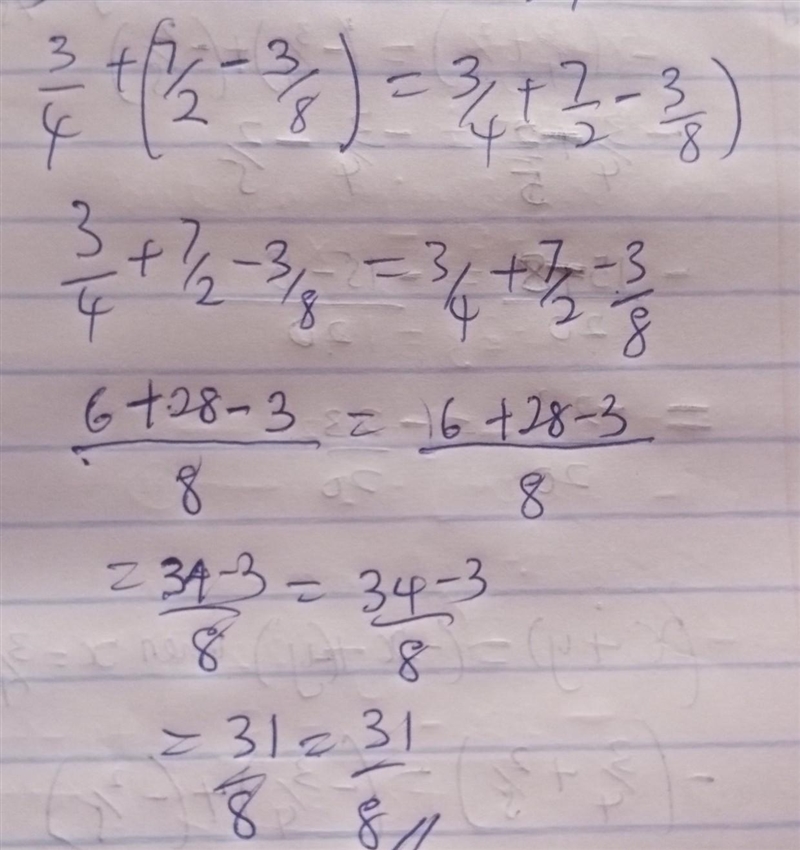 3/4 + (7/2 - 3/8) = 3/4 + 7/2 - 3/8)
3/4 + 7/2 - 3/8 = 3/4 + 7/2 - 3/8
6 + 28 - 3/8 = 6 + 28 - 3/8
= 34 - 3/8 = 34 - 3/8
= 31/8 = 31/8 //